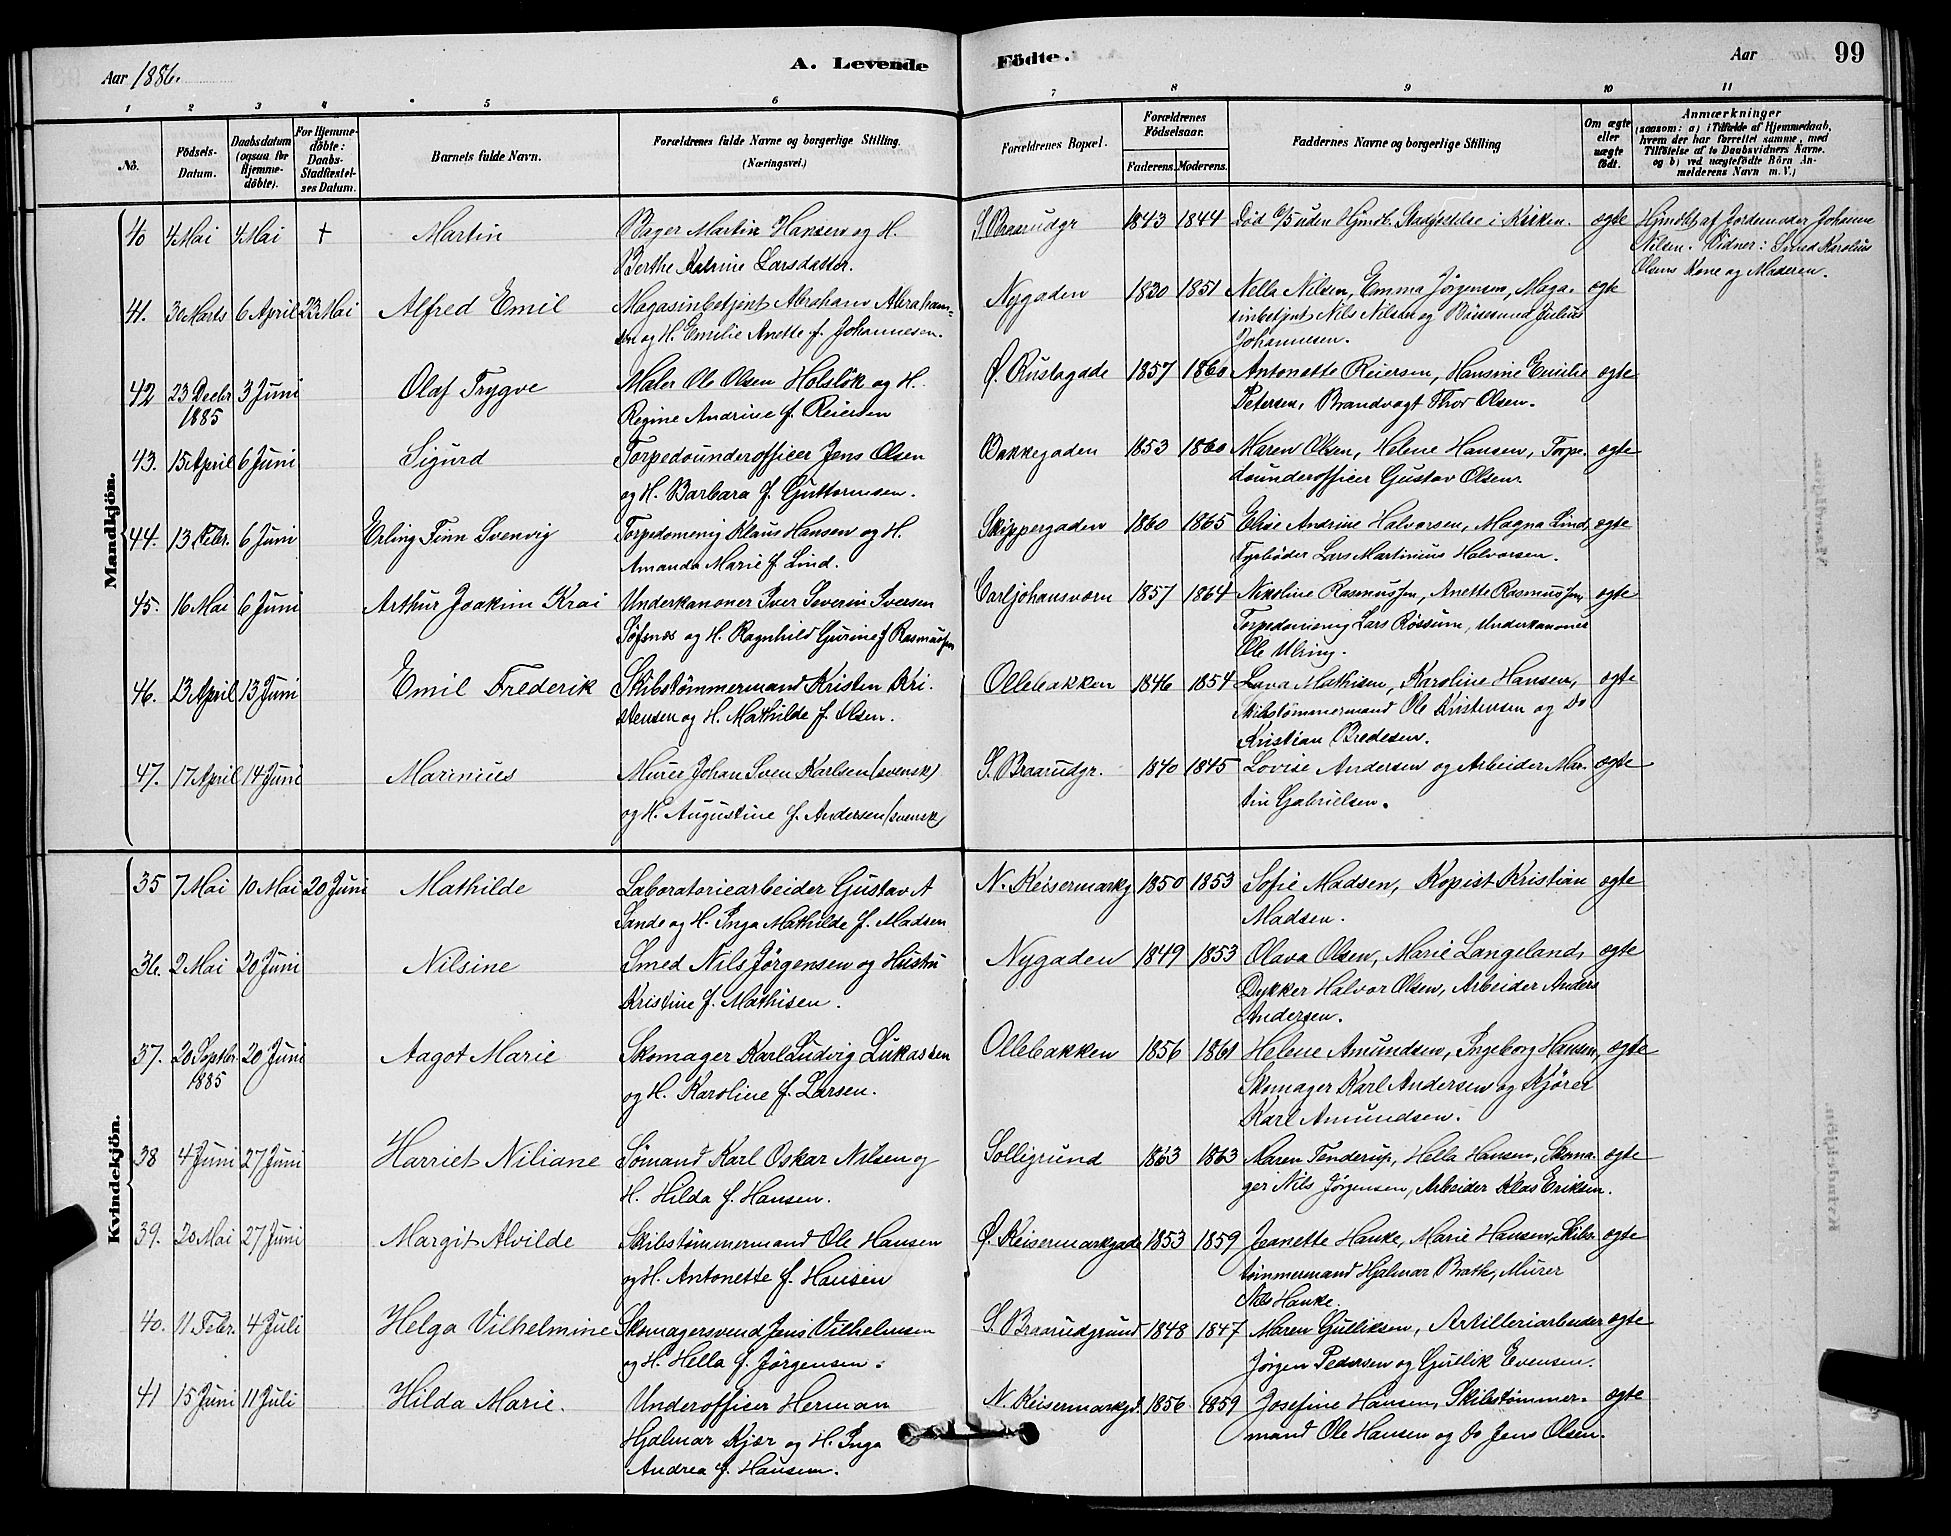 Aar 1886.
A. Levende
Födte.
Aar
99
1 2 3 4 5 6 7 8 9 10 11
No.
Födsels-Datum.
Daabsdatum (ogsaa för Hjemme-döbte).
For Hjemme-döbte: Daabs-Stadfæstel-ses Datum.
Barnets fulde Navn.
Forældrenes fulde Navne og borgerlige Stilling.
(Næringsvei.)
Forældrenes Bopæl.
Forældrenes Födselsaar.
Faderens. Moderens.
Faddernes Navne og borgerlige Stilling
Om ægte eller uægte födt.
Anmærkninger
(saasom: a) i Tilfælde af Hjemmedaab, hvem der har forrettet samme, med Tilföielse af to Daabsvidners Navne. og b) ved uægtefödte Börn Anmelderens Navn m. V.)
Mandkjön.
40 4 Mai 4 Mai + Martin Bager Martin Hansen og H. S. Braarudgr 1843 1844 Död 6/5 uden Hjmdb. Stadfæstelse i Kirken. ægte Hjmdbt af Jordemoder Johanne
Berthe Katrine Larsdatter. Nilsen. Vidner: Smed Karolius
Olsens Kone og Moderen.
41. 30 Marts 6 April 23 Mai Alfred Emil Magasinbetjent Abraham Abraham- Nygaden 1830 1851 Nella Nilsen, Emma Jörgensen, Maga- ægte
sen og H. Emilie Anette f. Johannesen. sinbetjent Nils Nilsen og Bösesmed Julius
Johannesen.
42 23 Decbr 3 Juni Olaf Trygve Maler Ole Olsen Holslök og H. Ø. Rustagade 1857 1860 Antonette Reiersen, Hansine Emilie ægte
1885 Regine Andrine f. Reiersen Petersen, Brandvagt Thor Olsen.
43. 15 April 6 Juni Sigurd Torpedounderofficer Jens Olsen Bakkegaden 1853 1860 Maren Olsen, Helene Hansen, Torpe- ægte
og H. Barbara f. Guttormsen. dounderofficer Gustav Olsen.
44. 13 Febr. 6 Juni Erling Finn Svenvig Torpedomenig Klaus Hansen og H. Skippergaden 1860 1865 Elise Andrine Halvorsen, Magna Lind, ægte
Amanda Marie f. Lind. Fyrböder Lars Martinius Halvorsen.
45. 16 Mai 6 Juni Arthur Joakim Krai Underkanoner Iver Severin Iversen Carljohansværn 1857 1864 Nikoline Rasmussen, Anette Rasmussen, ægte
Söfsnæs og H. Ragnhild Gurine f Rasmussen Torpedomenig Lars Rössum, Underkanoner
Ole Ulring.
46. 13 April 13 Juni Emil Frederik Skibstömmermand Kristen Kri- Ollebakken 1846 1854 Lava Mathisen, Karoline Hansen, ægte
stensen og H. Mathilde f. Olsen. Skibstömmermand Ole Kristensen og Do
Kristian Bredesen.
47. 17 April 14 Juni Marinius Murer Johan Sven Karlsen (svensk) S. Braarudgr. 1840 1845 Lovise Andersen og Arbeider Mar- ægte
og H. Augustine f. Andersen (svensk) tin Gabrielsen.
Kvindekjön.
35 7 Mai 10 Mai 20 Juni Mathilde Laboratoriearbeider Gustav A N. Keisermarkg 1850 1853 Sofie Madsen, Kopist Kristian ægte
Sande og H. Inga Mathilde f. Madsen Madsen.
36. 2 Mai 20 Juni Nilsine Smed Nils Jörgensen og Hustru Nygaden 1849 1853 Olava Olsen, Marie Langeland, ægte
Kristine f. Mathisen. Dykker Halvor Olsen, Arbeider Anders
Andersen.
37. 20 Septbr. 20 Juni Aagot Marie Skomager Karl Ludvig Lukassen Ollebakken 1856 1861 Helene Amundsen, Ingeborg Hansen, ægte
1885 og H. Karoline f. Larsen. Skomager Karl Andersen og Kjörer
Karl Amundsen.
38 4 Juni 27 Juni Harriet Niliane Sömand Karl Oskar Nilsen og Solligrund 1863 1863 Maren Tenderup, Hella Hansen, Skoma- ægte
H. Hilda f. Hansen. ger Nils Jörgensen, Arbeider Klas Eriksen.
39. 20 Mai 27 Juni Margit Alvilde Skibstömmermand Ole Hansen Ø. Keisermarkgade 1853 1859 Jeanette Hanke, Marie Hansen, Skibs- ægte
og H. Antonette f. Hansen tömmermand Hjalmar Brath, Murer
Nils Hanke.
40. 11 Febr. 4 Juli Helga Vilhelmine Skomagersvend Jens Vilhelmsen S. Braarudgrund 1848 1847 Maren Gulliksen, Artilleriarbeider ægte
og H. Hella f. Jörgensen. Jörgen Pedersen og Gullik Evensen.
41 15 Juni 11 Juli Hilda Marie. Underofficer Herman N. Keisermarkgd. 1856 1859 Josefine Hansen, Skibstömmer- ægte
Hjalmar Kjær og H. Inga mand Ole Hansen og do Jens Olsen.
Andrea f. Hansen.